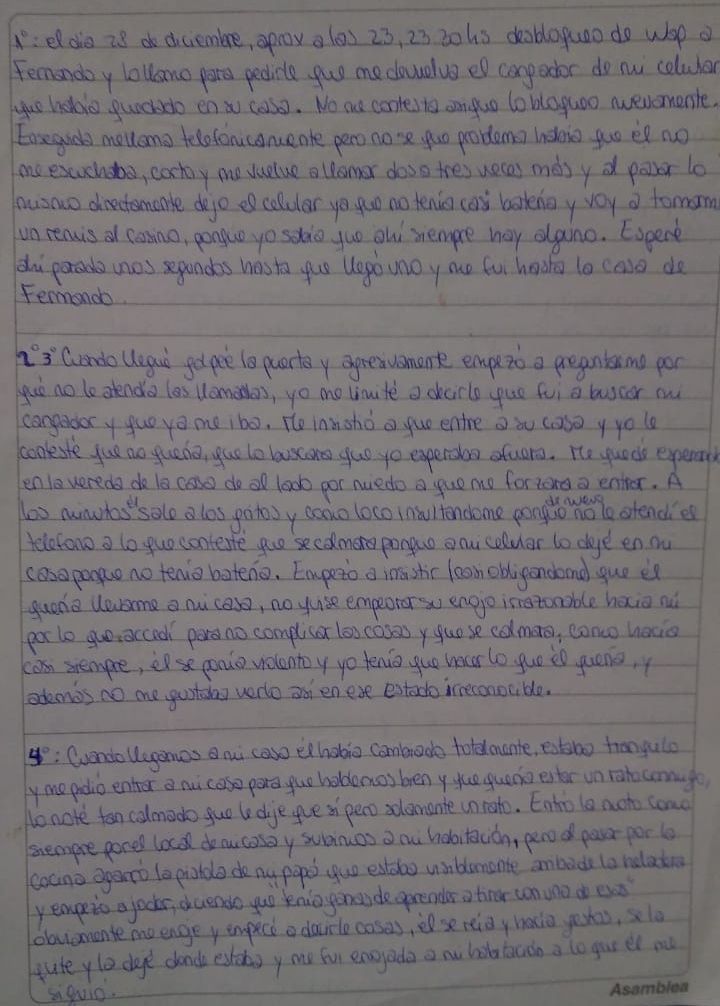 1°: el día 28 de diciembre, aprox a las 23, 23.30 hs desbloqueo de wap a
Fernando y lo llamo para pedirle que me devuelva el cargador de mi celular
que había quedado en su casa. No me contesta así que lo bloqueo nuevamente.
Enseguida me llama telefónicamente pero no se que problema había que él no
me escuchaba, corto y me vuelve a llamar dos o tres veces más y al pasar lo
mismo directamente dejo el celular ya que no tenía casi batería y voy a tomarm
un remis al casino, porque yo sabía que ahí siempre hay alguno. Esperé
ahí parada unos segundos hasta que llegó uno y me fui hasta la casa de
Fernando.
2° 3° Cuando llegué golpeé la puerta y agresivamente empezó a preguntarme por
qué no le atendía las llamadas, yo me limité a decirle que fui a buscar mi
cargador y que ya me iba. Me insistió a que entre a su casa y yo le
contesté que no quería, que lo buscara que yo esperaba afuera. Me quedé esperand
en la vereda de la casa de al lado por miedo a que me forzara a entrar. A
los minutos él sale a los gritos y como loco insultandome porque de nuevo no le atendí el
teléfono a lo que contesté que se calmara porque a mi celular lo dejé en mi
casa porque no tenía batería. Empezó a insistir (casi obligandome) que él
quería llevarme a mi casa, no quise empeorar su enojo irrazonable hacia mi
por lo que accedí para no complicar las cosas y que se calmara, como hacía
casi siempre, él se ponía violento y yo tenía que hacer lo que él quería, y
además no me gustaba verlo así en ese estado irreconocible.
4°: Cuando llegamos a mi casa él había cambiado totalmente, estaba tranquilo
y me pidió entrar a mi casa para que hablemos bien y que quería estar un rato conmigo,
lo noté tan calmado que le dije que sí pero solamente un rato. Entró la moto como
siempre por el local de mi casa y subimos a mi habitación, pero al pasar por la
cocina agarró la pistola de mi papá que estaba visiblemente arriba de la heladera
y empezó a joder, diciendo que "tenía ganas de aprender a tirar con una de esas"
obviamente me enojé y empecé a decirle cosas, él se reía y hacía gestos, se la
quité y la dejé donde estaba y me fui enojada a mi habitación a lo que él me
siguió.
Asamblea